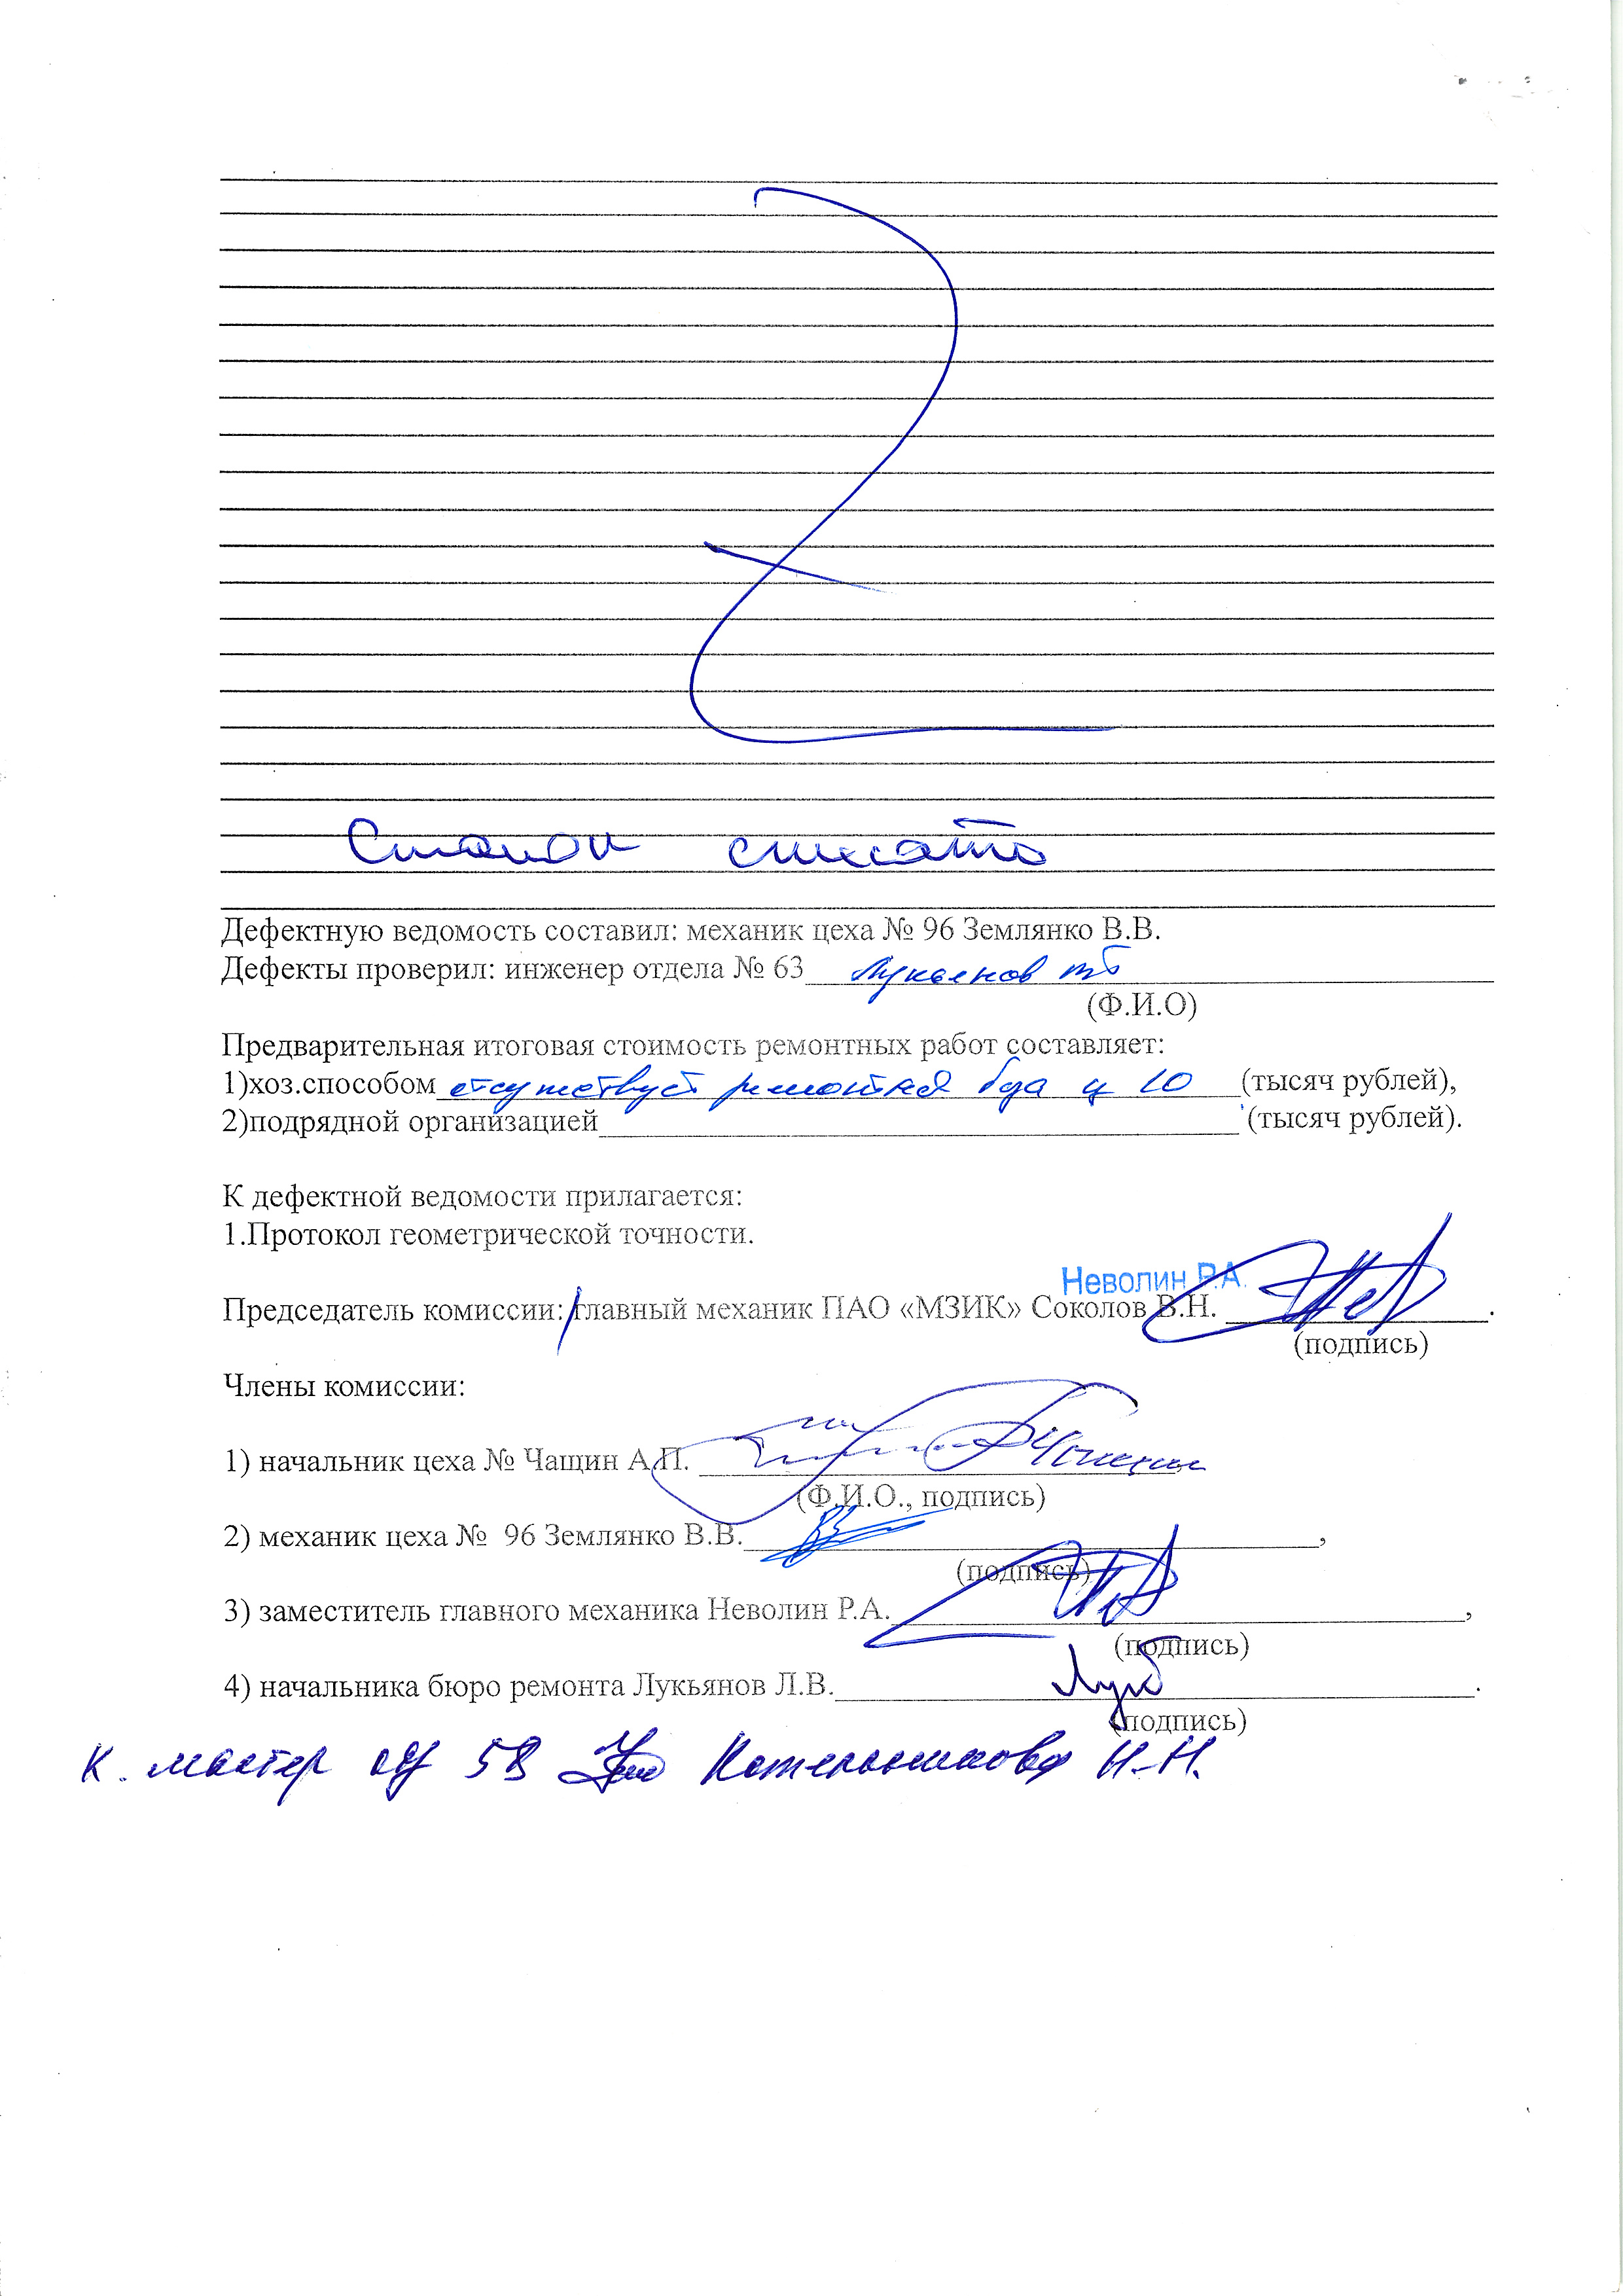 Станок списать
Дефектную ведомость составил: механик цеха № 96 Землянко В.В.
Дефекты проверил: инженер отдела № 63 Лукьянов
(Ф.И.О)
Предварительная итоговая стоимость ремонтных работ составляет:
1)хоз.способом отсутствует ремонтная база ц 10 (тысяч рублей),
2)подрядной организацией (тысяч рублей).
К дефектной ведомости прилагается:
1.Протокол геометрической точности.
Неволин Р.А.
Председатель комиссии: главный механик ПАО «МЗИК» Соколов В.Н.
(подпись)
Члены комиссии:
1) начальник цеха № Чащин А.П.
(Ф.И.О., подпись)
2) механик цеха № 96 Землянко В.В.
(подпись)
3) заместитель главного механика Неволин Р.А.
(подпись)
4) начальника бюро ремонта Лукьянов Л.В.
(подпись)
мастер 58 Котельникова Н.Н.